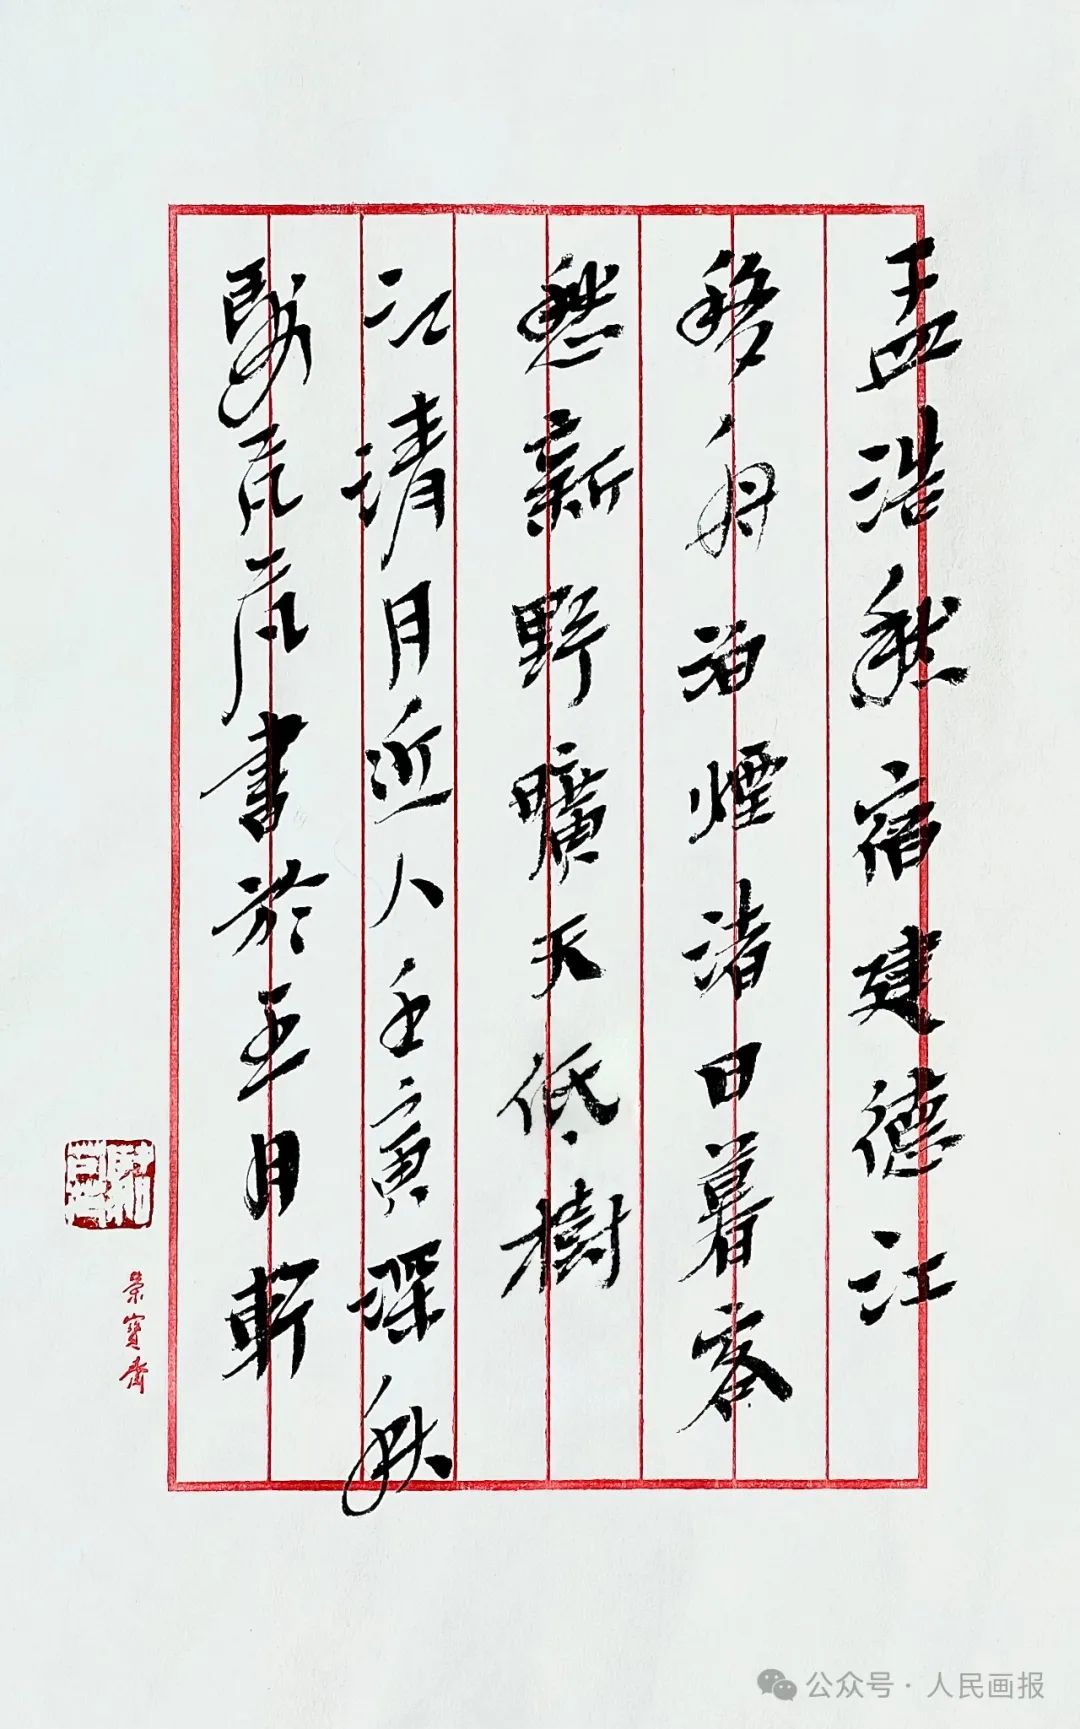 孟浩然宿建德江
移舟泊煙渚日暮客
愁新野曠天低樹
江清月近人壬寅深秋
書於玉月軒
榮寶齋
公众号·人民画报